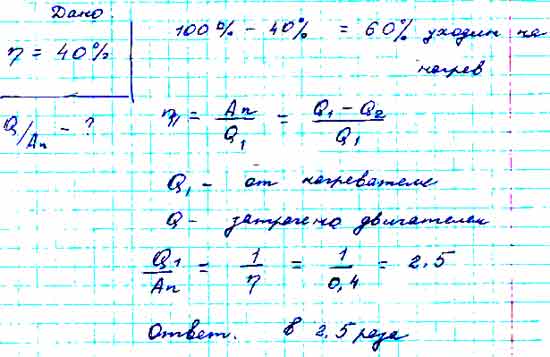 Дано
η = 40%
Q/Aп - ?
100% - 40% = 60% уходит на
нагрев
η = Aп/Q₁ = (Q₁ - Q₂)/Q₁
Q₁ - от нагревателя
Q - затрачено двигателем
Q₁/Aп = 1/η = 1/0,4 = 2,5
Ответ. в 2,5 раза